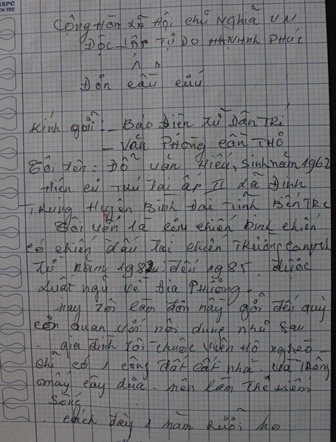 Cộng Hòa Xã Hội chủ Nghĩa VN
Độc Lập Tự Do HẠNH PHÚC
Đơn cầu cứu
Kính gửi: - Báo Điện Tử Dân TRÍ
- VĂN PHÒNG CẦN THƠ
Tôi tên: Đỗ văn Hiếu, Sinh năm 1962
Hiện cư TRÚ Tại ấp II Xã Định
TRUNG Huyện Bình Đại Tỉnh BẾN TRE
Tôi vốn là cựu chiến binh chiến
có chiến đấu tại chiến TRường
từ năm 1982 đến 1985. được
xuất ngũ về Địa Phương.
nay Tôi làm đơn này gởi đến quý
cơ quan với nội dung như sau
gia đình tôi thuộc diện hộ nghèo
chỉ có 1 công đất cất nhà và trồng
mấy cây dừa. nên làm Thê kiếm
Sống.
cách đây 1 năm Rưỡi